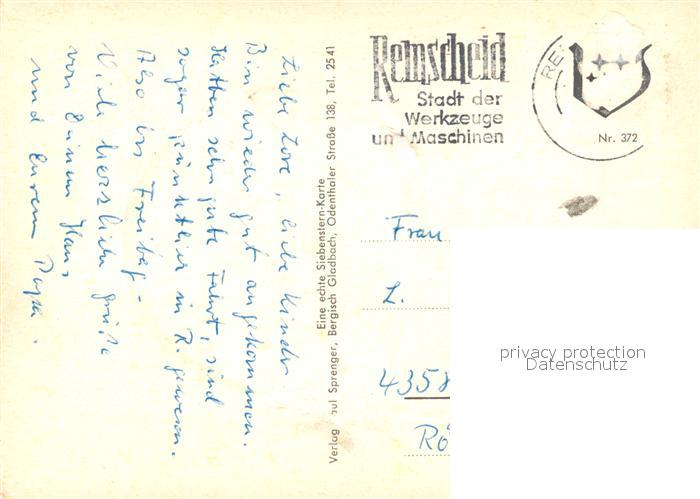 Liebe Lore, liebe Kinder
Bin wieder gut angekommen.
Hatten sehr gute Fahrt, sind
sogar pünktlich in R. gewesen.
Also bis Freitag -
Viele herzliche Grüße
von Einem Hans,
und Eurem Papa.
Eine echte Siebenstern-Karte
Verlag Paul Sprenger, Bergisch Gladbach, Odenthaler Straße 138, Tel. 2541
Remscheid
Stadt der
Werkzeuge
und Maschinen
RE
Nr. 372
Frau
L.
4358
Rö
privacy protection
Datenschutz